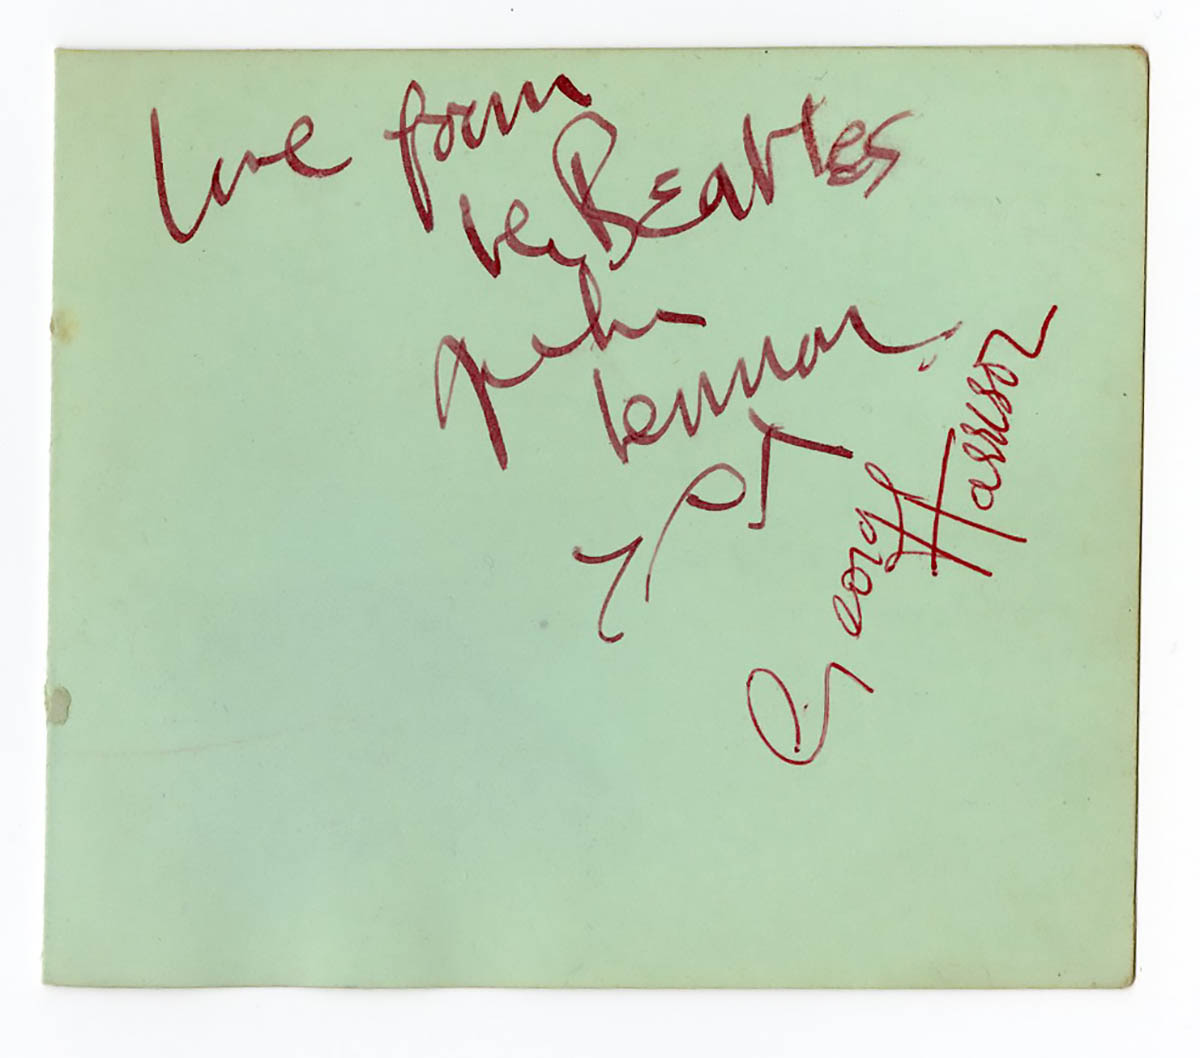 love form
the Beatles
John
Lennon
George Harrison